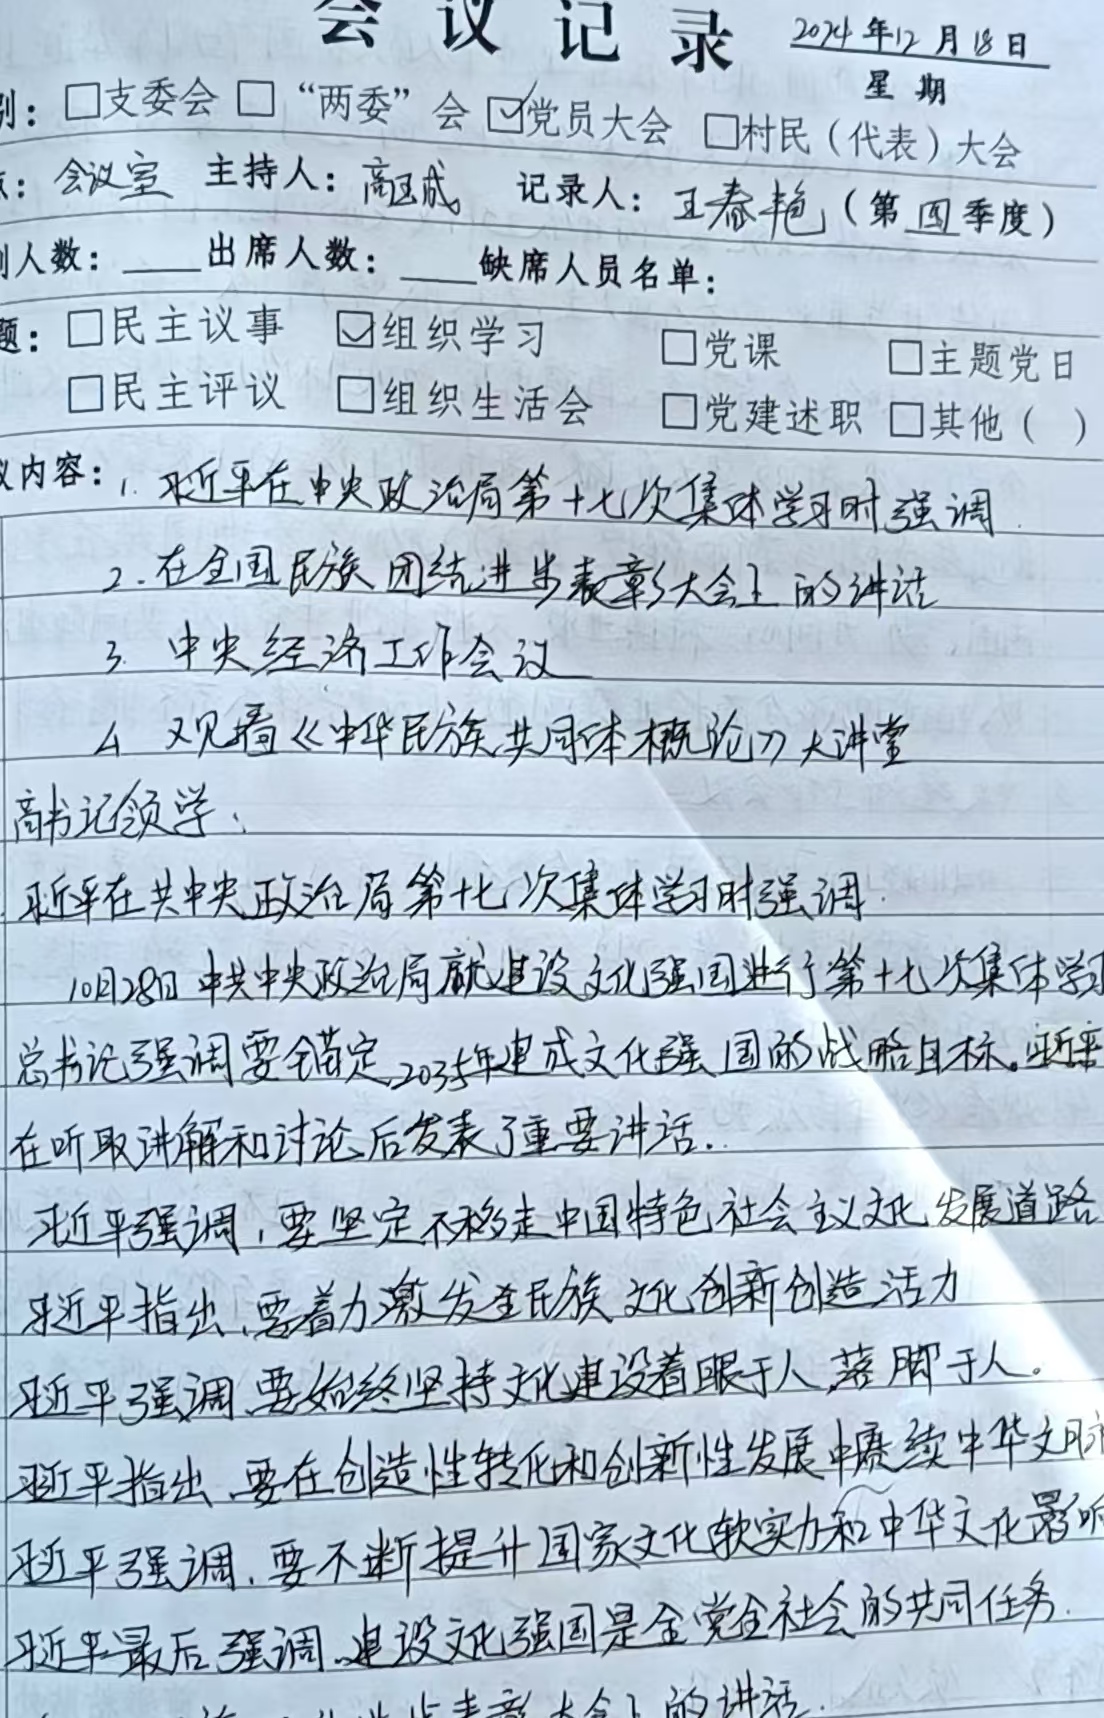 会议记录 2024年12月18日
星期
别：□支委会 □“两委”会 ☑党员大会 □村民（代表）大会
：会议室 主持人：高玉成 记录人：王春艳（第四季度）
人数：____出席人数：____缺席人员名单：
题：□民主议事 ☑组织学习 □党课 □主题党日
□民主评议 □组织生活会 □党建述职 □其他（ ）
议内容：1. 习近平在中央政治局第十七次集体学习时强调.
2. 在全国民族团结进步表彰大会上的讲话
3. 中央经济工作会议
4 观看《中华民族共同体概论》大讲堂
高书记领学、
习近平在共中央政治局第十七次集体学习时强调.
10月28日中共中央政治局就建设文化强国进行第十七次集体学习
总书记强调要锚定2035年建成文化强国的战略目标。习近平
在听取讲解和讨论后发表了重要讲话.
习近平强调，要坚定不移走中国特色社会主义文化发展道路
习近平指出、要着力激发全民族文化创新创造活力
习近平强调、要始终坚持文化建设着眼于人、落脚于人。
习近平指出、要在创造性转化和创新性发展中赓续中华文脉
习近平强调、要不断提升国家文化软实力和中华文化影响
习近平最后强调、建设文化强国是全党全社会的共同任务.
进步表彰大会上的讲话.